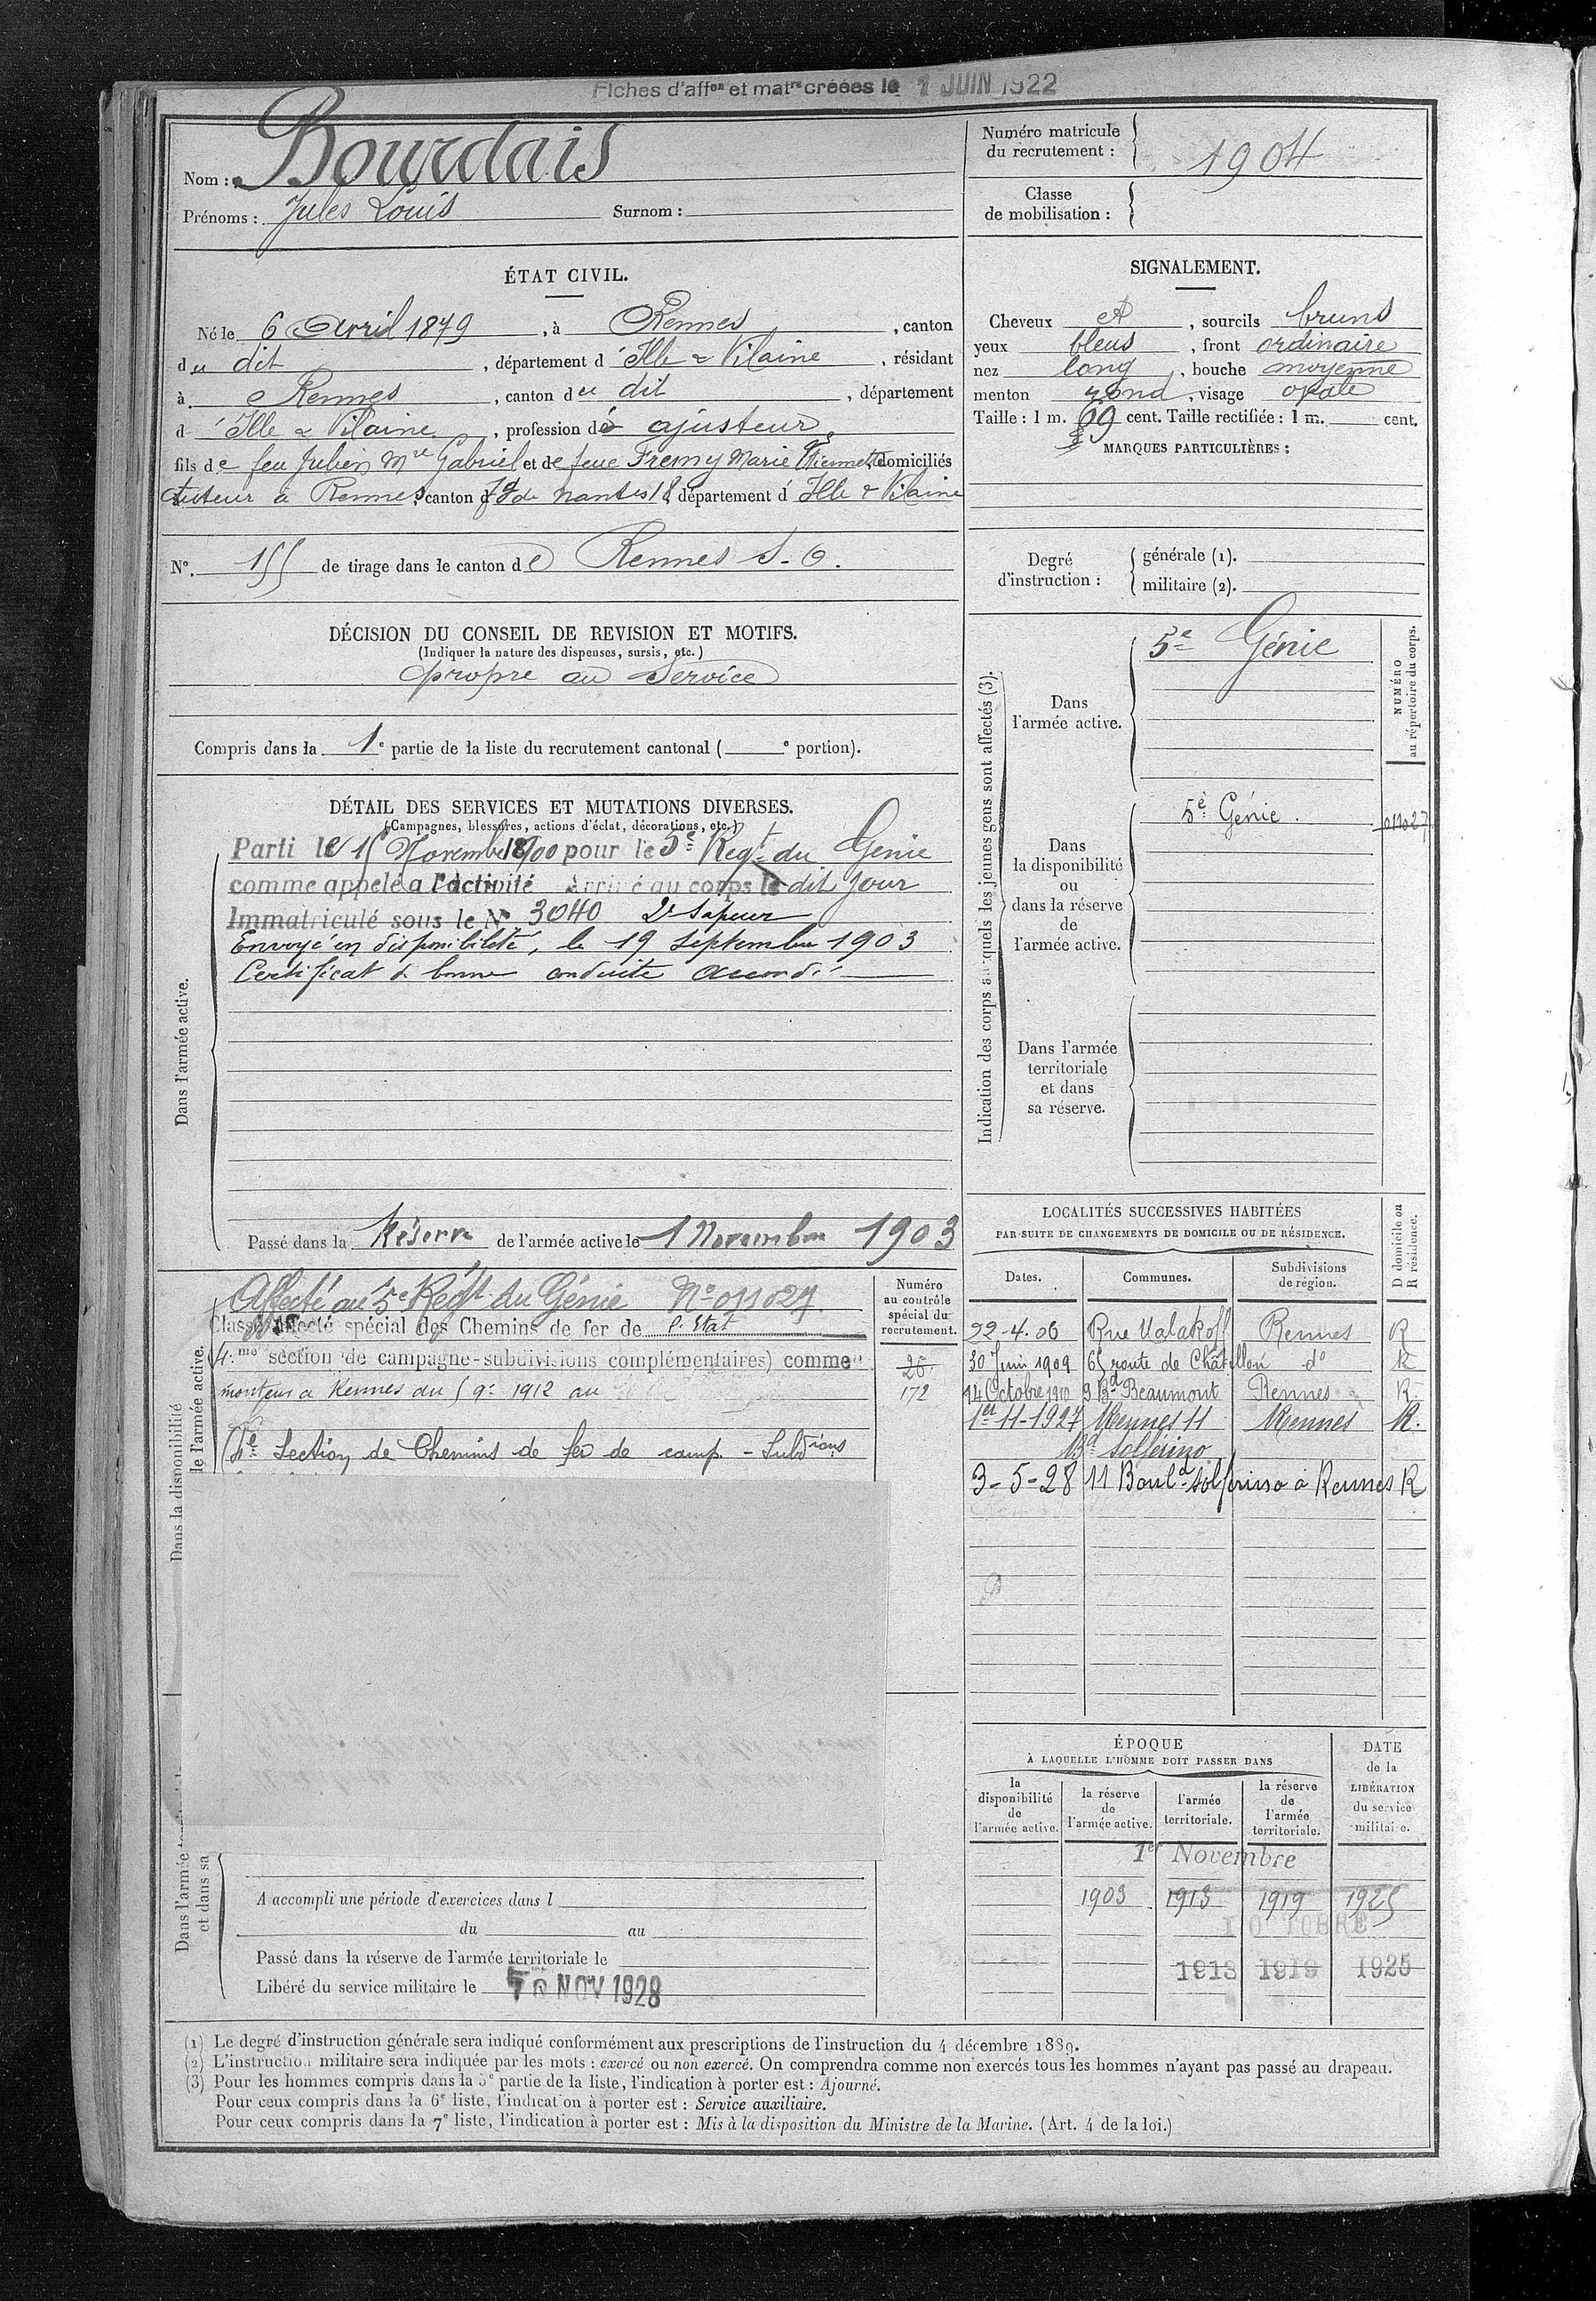 Fiches d'affon et matre créées le 1 JUIN 1922
Nom : Bourdais
Prénoms : Jules Louis Surnom :
Numéro matricule du recrutement : 1904
Classe de mobilisation :
ÉTAT CIVIL.
Né le 6 Avril 1879, à Rennes, canton
du dit, département d'Ille & Vilaine, résidant
à Rennes, canton du dit, département
d'Ille & Vilaine, profession d ajusteur
fils de feu Julien Mie Gabriel et de feue Fremy Marie domiciliés
tuteur à Rennes, canton de Nantes 18, département d'Ille & Vilaine
No. 155 de tirage dans le canton de Rennes S-O.
DÉCISION DU CONSEIL DE REVISION ET MOTIFS.
(Indiquer la nature des dispenses, sursis, etc.)
propre au Service
Compris dans la 1e partie de la liste du recrutement cantonal ( e portion).
DÉTAIL DES SERVICES ET MUTATIONS DIVERSES.
(Campagnes, blessures, actions d'éclat, décorations, etc.)
Dans l'armée active.
Parti le 15 Novembre 1900 pour le 5e Regt du Génie
comme appelé à l'activité Arrivé au corps le dit jour
Immatriculé sous le No 3040 2e Sapeur
Envoyé en disponibilité, le 19 Septembre 1903
Certificat de bonne conduite accordé
Passé dans la Réserve de l'armée active le 1 Novembre 1903
Dans la disponibilité
de l'armée active.
Numéro au contrôle spécial du recrutement.
Affecté au 5e Régt du Génie No 011027
Classé affecté spécial des Chemins de fer de l'Etat
(4me section de campagne-subdivisions complémentaires) comme 26
monteur à Rennes du 5 9e 1912 au 172
(4e Section de Chemins de fer de camp. - Subdions
Dans l'armée
et dans sa
A accompli une période d'exercices dans l
du au
Passé dans la réserve de l'armée territoriale le
Libéré du service militaire le NOV 1928
SIGNALEMENT.
Cheveux et, sourcils bruns
yeux bleus, front ordinaire
nez long, bouche moyenne
menton rond, visage ovale
Taille : 1 m. 69 cent. Taille rectifiée : 1 m. cent.
MARQUES PARTICULIÈRES :
Degré d'instruction : générale (1).
militaire (2).
Indication des corps auxquels les jeunes gens sont affectés (3).
NUMÉRO au répertoire du corps.
Dans l'armée active. 5e Génie
Dans la disponibilité ou dans la réserve de l'armée active. 5e Génie. 011027
Dans l'armée territoriale et dans sa réserve.
LOCALITÉS SUCCESSIVES HABITÉES
PAR SUITE DE CHANGEMENTS DE DOMICILE OU DE RÉSIDENCE.
Dates. Communes. Subdivisions de région. D domicile ou R résidence.
22-4-06 Rue Malakoff Rennes R
30 Juin 1909 65 route de Châtillon do R
14 Octobre 1910 9 Bd Beaumont Rennes R.
1er-11-1927 Rennes 11 Rennes R.
Bd Solférino
3-5-28 11 Bould Solférino à Rennes R
ÉPOQUE
À LAQUELLE L'HOMME DOIT PASSER DANS
la disponibilité de l'armée active. la réserve de l'armée active. l'armée territoriale. la réserve de l'armée territoriale.
DATE de la LIBÉRATION du service militaire.
1er Novembre
1903 1913 1919 1925
1 OCTOBRE
1913 1919 1925
(1) Le degré d'instruction générale sera indiqué conformément aux prescriptions de l'instruction du 4 décembre 1889.
(2) L'instruction militaire sera indiquée par les mots : exercé ou non exercé. On comprendra comme non exercés tous les hommes n'ayant pas passé au drapeau.
(3) Pour les hommes compris dans la 5e partie de la liste, l'indication à porter est : Ajourné.
Pour ceux compris dans la 6e liste, l'indication à porter est : Service auxiliaire.
Pour ceux compris dans la 7e liste, l'indication à porter est : Mis à la disposition du Ministre de la Marine. (Art. 4 de la loi.)